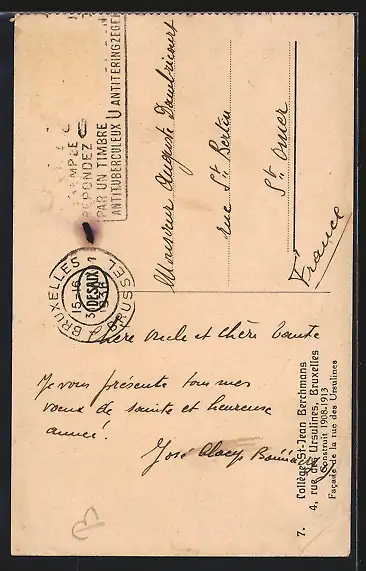 RÉPONDEZ
PAR UN TIMBRE
ANTITUBERCULEUX
ANTITERINGZEGEL
BRUXELLES
15-16
DES AUX
1938
BRUSSEL
Monsieur Auguste
rue St Bertin
St Omer
France
Chère Oncle et Chère Tante
Je vous présente tous mes
vœux de sainte et heureuse
année.
José
7. Collège St-Jean Berchmans
4, rue des Ursulines, Bruxelles
Construit 1908-1913
Façade de la rue des Ursulines